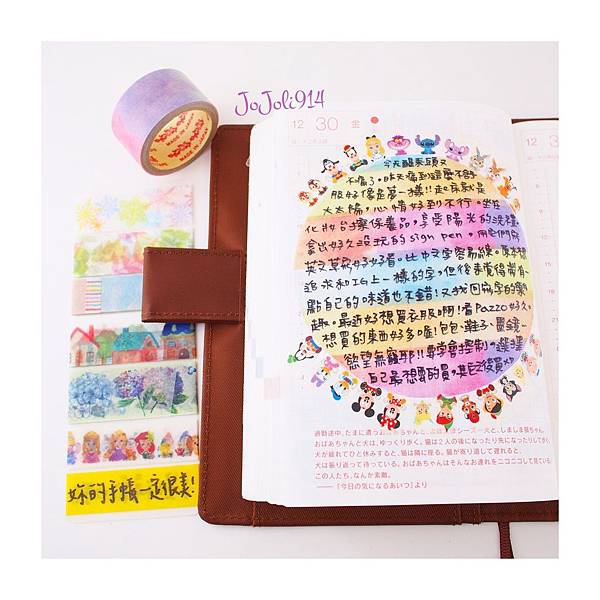 JoJoli914
MADE IN JAPAN
12 30 金
今天醒來頭又
不暈了。昨天痛到這麼不舒
服好像是夢一樣!!起床就是
大太陽,心情好到不行。坐在
化妝台擦保養品,享受陽光的洗禮
拿出好久沒玩的sign pen,用它們寫
英文草寫好好看。比中文字容易練。原本想
追求和IG上一樣的字,但後來覺得帶有一
點自己的味道也不錯!又找回寫字的樂
趣。最近好想買衣服啊!看Pazzo好久。
想買的東西好多喔!包包、鞋子、墨鏡…
慾望無窮耶!!要學會控制。選擇
自己最想要的買,其它後買XD
妳的手帳一定很美!
過勤途中、たまに遭うおばあちゃんと、
シーズー犬と、しましま猫ちゃん。
おばあちゃんと犬は、ゆっくり歩く。猫は2人の後になったり先になったりして歩く。
犬が疲れてひと休みすると、猫は隣に座る。猫が寄り道して遅れると、
犬は振り返って待っている。おばあちゃんはそんなお連れをニコニコして見ている。
この人たち、なんか素敵。
——『今日の気になるあいつ』より